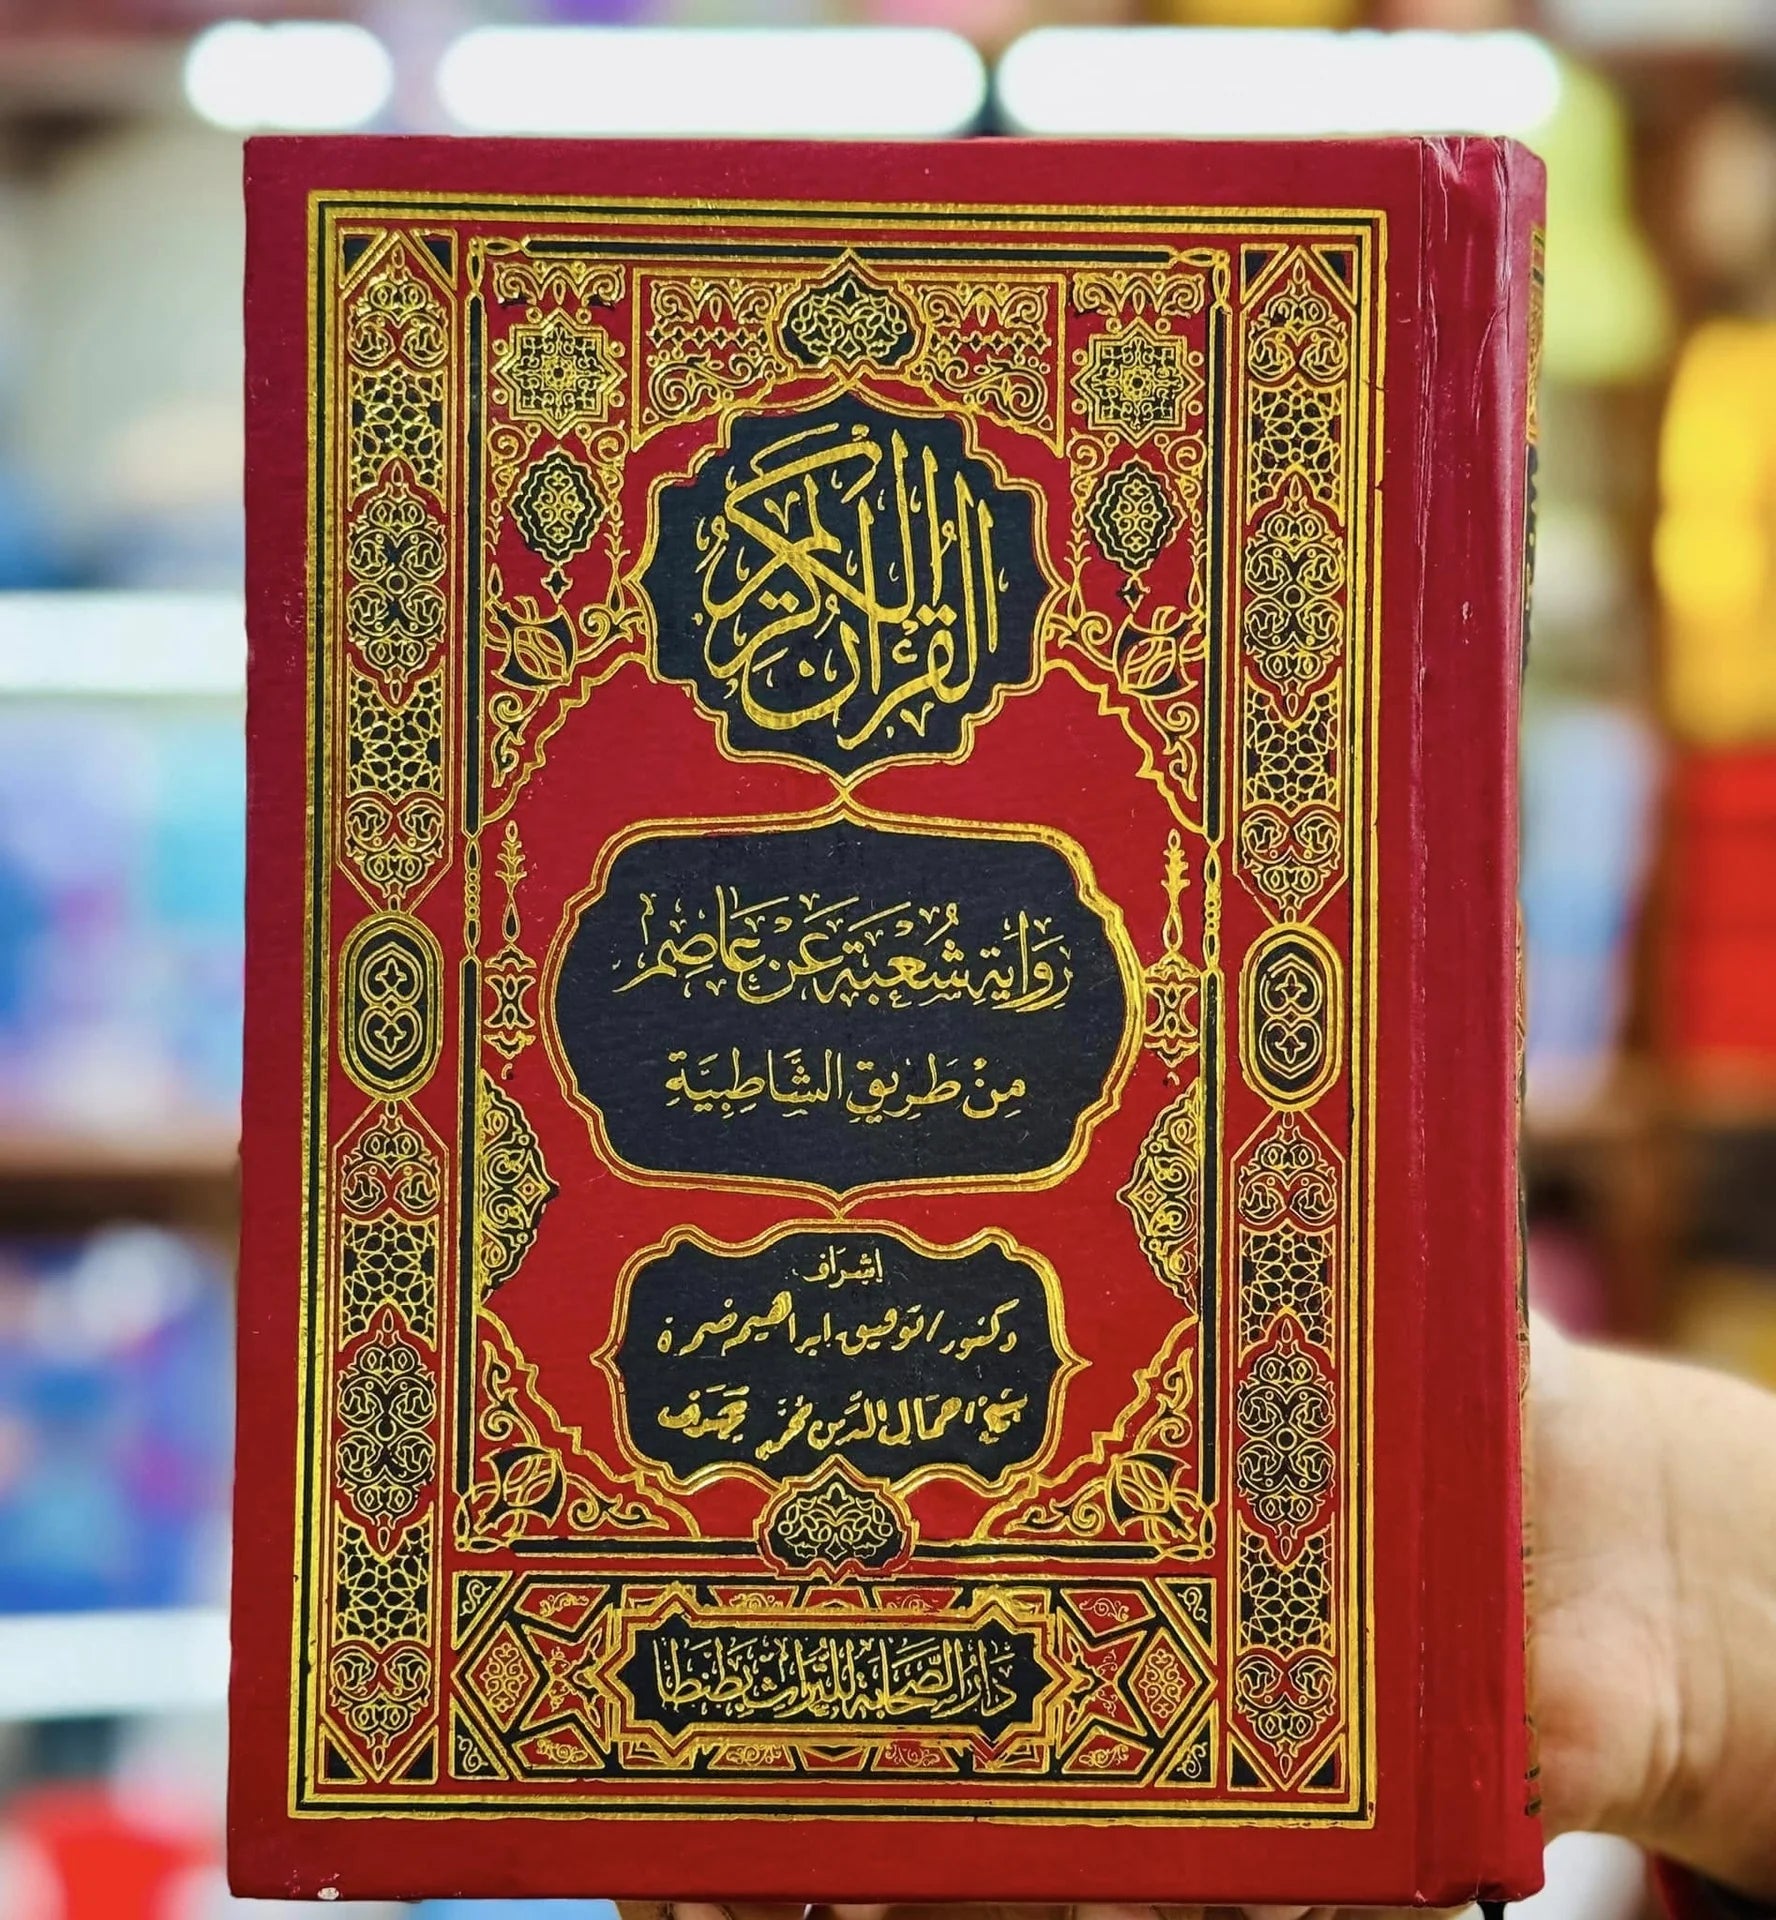 القرآن الكريم
رِوَايَةِ شُعْبَةَ عَنْ عَاصِم
مِنْ طَرِيقِ الشَّاطِبِيَّةِ
إشراف
دكتور / توفيق ابراهيم ضمرة
جمال الدين محمد شرف
دَارُ الصَّحَابَةِ لِلتُّرَاثِ بِطَنْطَا